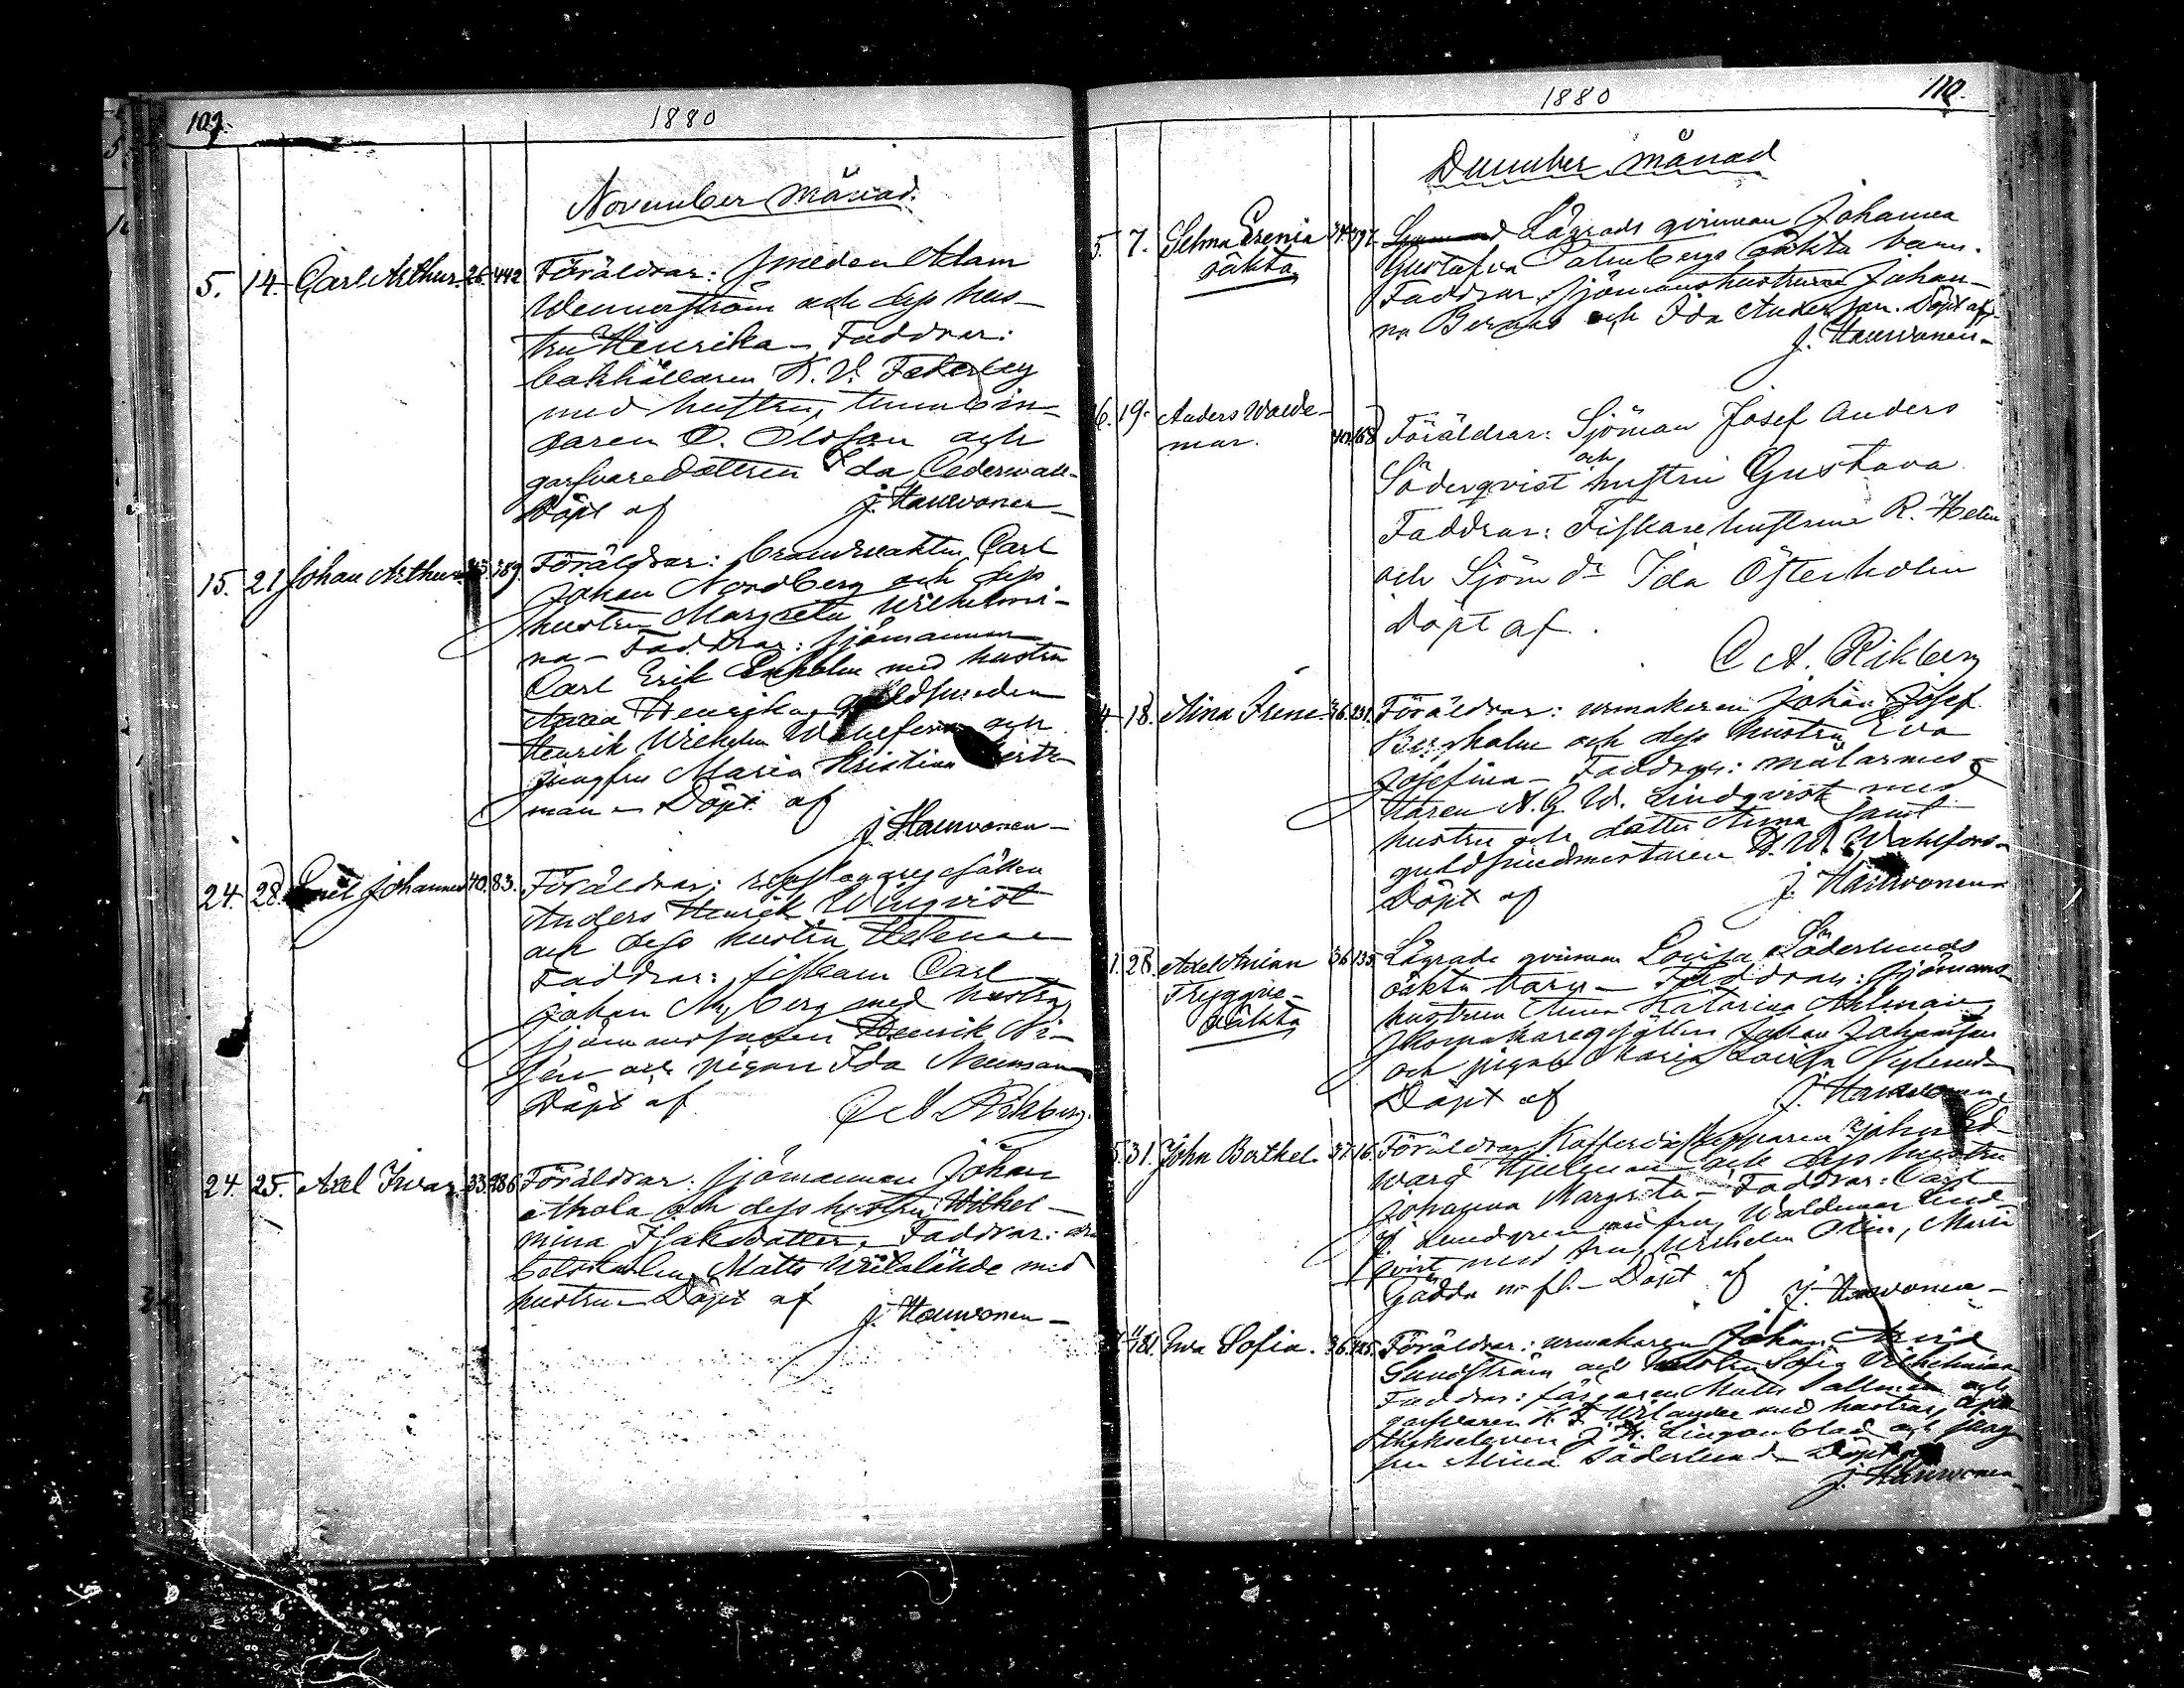 109.
1880
November månad.
5. 14. Carl Arthur. 26. 442 Föräldrar: Smeden Adam
Wennerström och dess hus-
tru Henrika - Faddrar:
bokhållaren K. V. Federley
med hustru, tunnbin-
daren O. Olsson och
garfvaredottren Ida Cederwall-
Döpt af J. Hauvonen-
15. 21 Johan Arthur 389. Föräldrar: brandvakten Carl
Johan Nordberg och dess
hustru Margreta Wilhelmi-
na - Faddrar: sjömannen
Carl Erik Enholm med hustru
Anna Henrika, guldsmeden
Henrik Wilhelm och
jungfru Maria Kristina
man - Döpt af
J. Hauvonen-
24. 28. Emil Johannes 40. 83. Föräldrar: repslagaregesällen
Anders Henrik Winqvist
och dess hustru Helena
Faddrar: fiskaren Carl
Johan Nyberg med hustru,
sjömanssonen Henrik Ni-
sén och pigan Ida Neuman
Döpt af C A Rikberg.
24. 25. Axel Ivar 33. 486 Föräldrar: sjömannen Johan
Ahola och dess hustru Wilhel-
mina Isaksdotter, Faddrar: ar-
betskarlen Matts med
hustru - Döpt af
J. Hauvonen-
1880
110.
December månad
5. 7. Selma Irenia 397. Lägrads qvinnan Johanna
oäkta Gustafva Palmbergs oäkta barn.
Faddrar, sjömanshustrurna Johan-
na och Ida Andersson. Döpt af
J. Hauvonen-
6. 19. Anders Walde- Föräldrar: Sjöman Josef Anders
mar. 168
och
Söderqvist hustru Gustava
Faddrar: Fiskarehustrun R. Helin
och Sjöm dr Ida Österholm
Döpt af.
C A. Rikberg
18. Aina Irene 36. 231. Föräldrar: urmakaren Johan Josef
Bergholm och dess hustru Eva
Josefina - Faddrar: målarmes-
taren A. G. W. Lindqvist med
hustru och dotter Anna samt
guldsmedmestaren H. W. Wahlfors-
Döpt af J. Hauvonen-
28. Axel Anian 36 135. Lägrade qvinnan Lovisa Söderlunds
Tryggve- oäkta barn - Faddrar: sjömans-
oäkta hustrun Anna Katarina Ahlman,
skomakaregesällen Johan Johansson
och pigan Maria Lovisa Nylund-
Döpt af J. Hauvonen.
31. John Berthel. 37. 16. Föräldrar, Kofferdiskepparen John Ed-
ward Hjelman och dess hustru
Johanna Margreta - Faddrar: Carl
J. Lundgren med fru, Waldemar Lind-
qvist med fru, Wilhelm Olin, Maria
Gädda m. fl. - Döpt af J. Hauvonen-
81. Ewa Sofia. 36. 425. Föräldrar: urmakaren Johan Arvid
Sundström och hustru Sofia Vilhelmina
Faddrar: färgaren Matts Dallmén och
garfvaren K. F. Wilander med hustrur, apo-
tekseleven J. H. Lingonblad och jung-
fru Mina Söderlund - Döpt af
J. Hauvonen